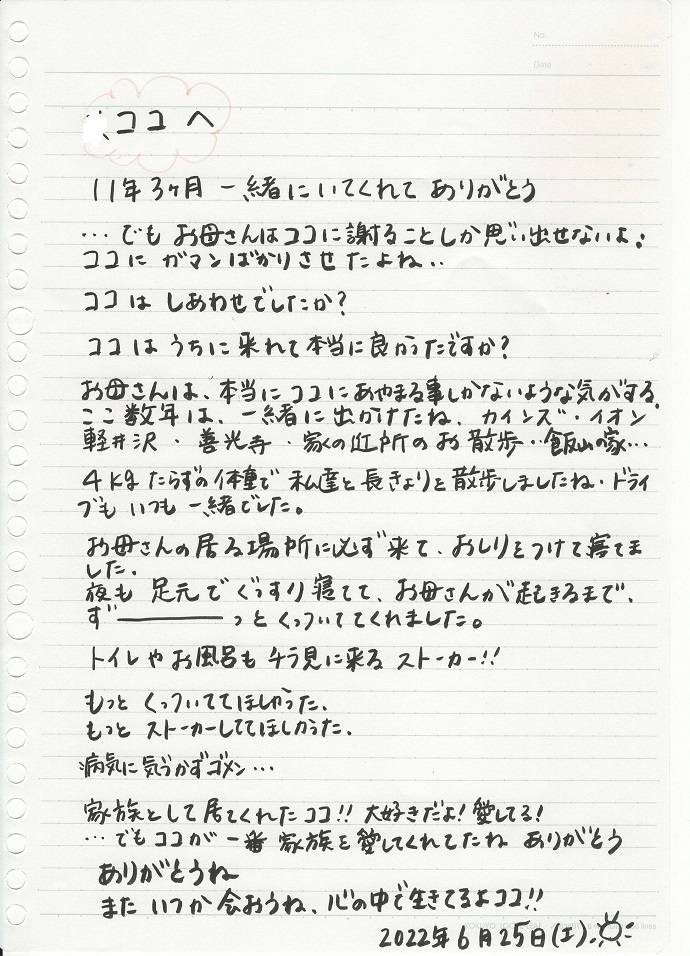 No.
Date
ココへ
11年3ヶ月 一緒にいてくれて ありがとう
…でも お母さんはココに謝ることしか思い出せないよ.
ココに ガマンばかりさせたよね..
ココは しあわせでしたか?
ココは うちに来れて本当に良かったですか?
お母さんは、本当にココにあやまる事しかないような気がする.
ここ数年は、一緒に出かけたね、カインズ・イオン
軽井沢・善光寺・家の近所のお散歩…飯山の家…
4kgたらずの体重で 私達と長きょりを散歩しましたね・ドライ
ブも いつも 一緒でした。
お母さんの居る場所に必ず来て、おしりをつけて寝てま
した.
夜も 足元でぐっすり寝てて、お母さんが起きるまで、
ず――――っと くっついててくれました。
トイレや お風呂も チラ見に来る ストーカー!!
もっと くっついててほしかった.
もっと ストーカーしててほしかった.
病気に気づかずゴメン…
家族として居てくれたココ!! 大好きだよ! 愛してる!
…でもココが 一番 家族を愛してくれてたね ありがとう
ありがとうね
また いつか会おうね、心の中で生きてるよココ!!
2022年6月25日(土).